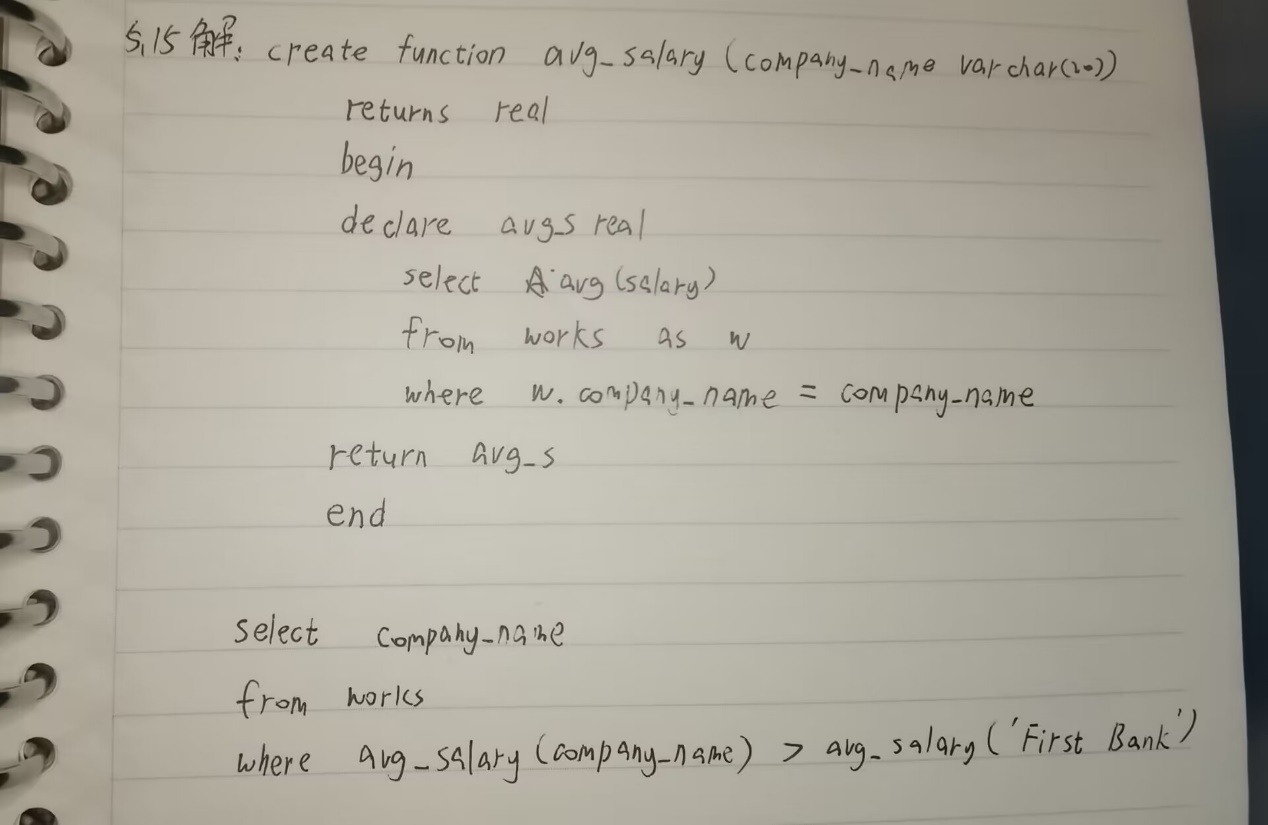 5.15 解: create function avg_salary (company_name varchar(20))
returns real
begin
declare avg_s real
select avg (salary)
from works as w
where w. company_name = company_name
return avg_s
end
select company_name
from works
where avg_salary (company_name) > avg_salary ('First Bank')